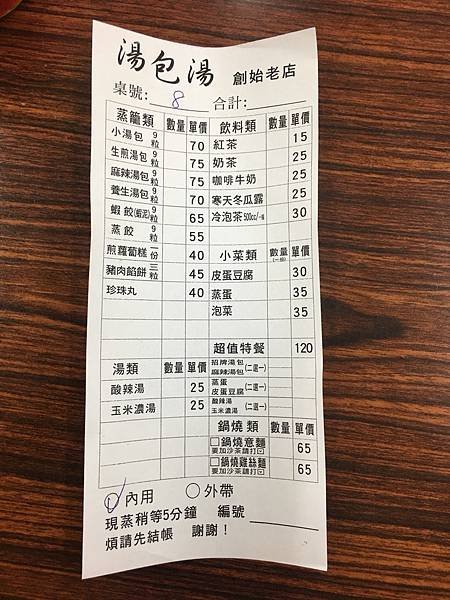 湯包湯 創始老店
桌號: 8 合計:
蒸籠類 數量 單價 飲料類 數量 單價
小湯包 9粒 70 紅茶 15
生煎湯包 9粒 75 奶茶 25
麻辣湯包 9粒 75 咖啡牛奶 25
養生湯包 9粒 70 寒天冬瓜露 25
蝦餃(蝦泥) 9粒 65 冷泡茶500cc/一罐 30
蒸餃 9粒 55
煎蘿蔔糕 份 40 小菜類 數量 單價
豬肉餡餅 三粒 45 皮蛋豆腐 30
珍珠丸 40 蒸蛋 35
泡菜 35
超值特餐 120
湯類 數量 單價 招牌湯包 麻辣湯包 (二選一)
酸辣湯 25 蒸蛋 皮蛋豆腐 (二選一)
玉米濃湯 25 酸辣湯 玉米濃湯 (二選一)
鍋燒類 數量 單價
□鍋燒意麵 65
要加沙茶請打☑
□鍋燒雞絲麵 65
要加沙茶請打☑
内用 ○外帶
現蒸稍等5分鐘 編號
煩請先結帳 謝謝！